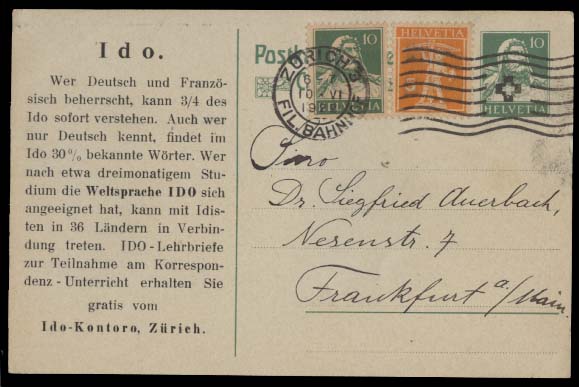 Ido.
Wer Deutsch und Franzö-
sisch beherrscht, kann 3/4 des
Ido sofort verstehen. Auch wer
nur Deutsch kennt, findet im
Ido 30% bekannte Wörter. Wer
nach etwa dreimonatigem Stu-
dium die Weltsprache IDO sich
angeeignet hat, kann mit Idis-
ten in 36 Ländern in Verbin-
dung treten. IDO-Lehrbriefe
zur Teilnahme am Korrespon-
denz-Unterricht erhalten Sie
gratis vom
Ido-Kontoro, Zürich.
10
HELVETIA
HELVETIA
10
HELVETIA
ZÜRICH 3
FIL. BAHNH
Sinro
Dr. Siegfried Auerbach,
Nesenstr. 7
Frankfurt a/Main.